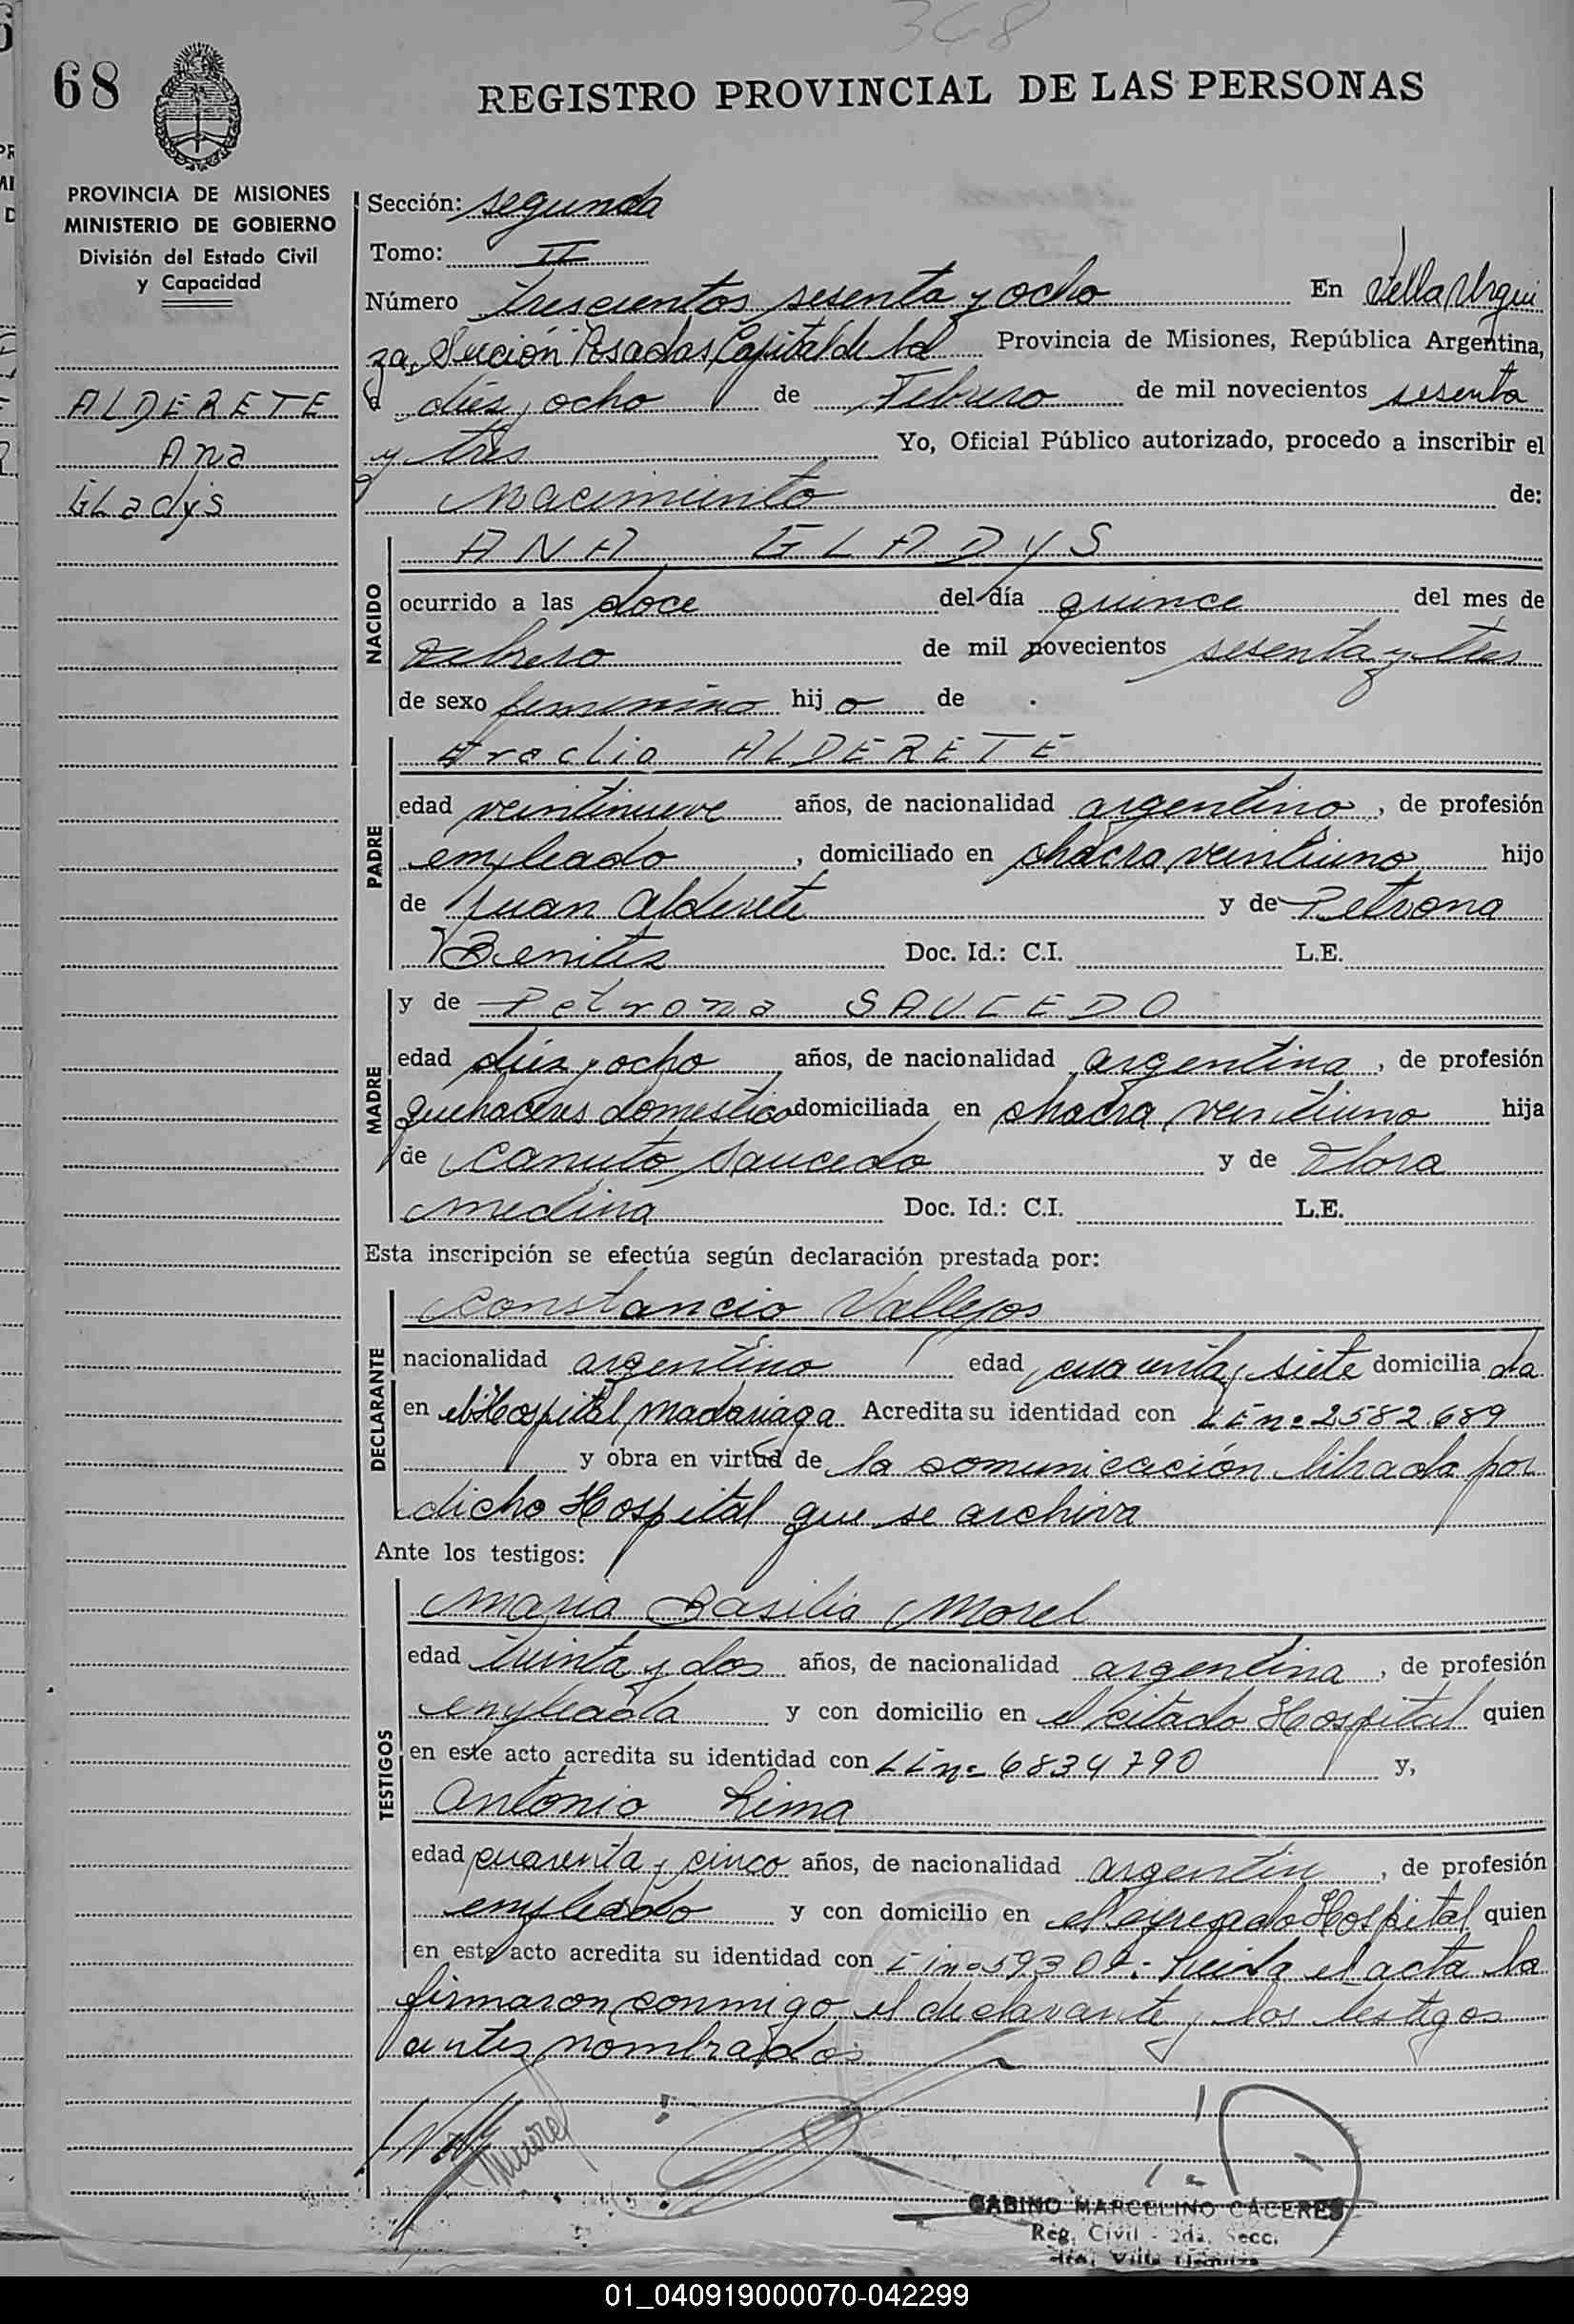 368
68
REGISTRO PROVINCIAL DE LAS PERSONAS
PROVINCIA DE MISIONES
MINISTERIO DE GOBIERNO
División del Estado Civil
y Capacidad
ALDERETE
Ana
GLadys
Sección: segunda
Tomo: II
Número trescientos sesenta y ocho En Villa Urqui
za, Sección Posadas, Capital de la Provincia de Misiones, República Argentina,
a diez y ocho de Febrero de mil novecientos sesenta
y tres Yo, Oficial Público autorizado, procedo a inscribir el
Nacimiento de:
NACIDO
ANA GLADYS
ocurrido a las doce del día quince del mes de
febrero de mil novecientos sesenta y tres
de sexo femenino hij a de
PADRE
Eraclio ALDERETE
edad veintinueve años, de nacionalidad argentino, de profesión
empleado, domiciliado en chacra veintiuno hijo
de Juan Alderete y de Petrona
Benitez Doc. Id.: C.I. L.E.
MADRE
y de Petrona SAUCEDO
edad diez y ocho años, de nacionalidad argentina, de profesión
quehaceres domestico domiciliada en chacra veintiuno hija
de Canuto Saucedo y de Flora
Medina Doc. Id.: C.I. L.E.
Esta inscripción se efectúa según declaración prestada por:
DECLARANTE
Constancio Vallejos
nacionalidad argentino edad cuarenta y siete domicilia da
en el Hospital Madariaga Acredita su identidad con LE nº 2582689
y obra en virtud de la comunicación librada por
dicho Hospital que se archiva
Ante los testigos:
TESTIGOS
Maria Basilia Morel
edad treinta y dos años, de nacionalidad argentina, de profesión
empleada y con domicilio en el citado Hospital quien
en este acto acredita su identidad con LE nº 6834790 y,
Antonio Lima
edad cuarenta y cinco años, de nacionalidad argentin, de profesión
empleado y con domicilio en el expresado Hospital quien
en este acto acredita su identidad con Leida el acta la
firmaron conmigo el declarante y los testigos
antes nombrados
GABINO MARCELINO CACERES
Reg. Civil - 2da. Secc.
Villa Urquiza
01_040919000070-042299